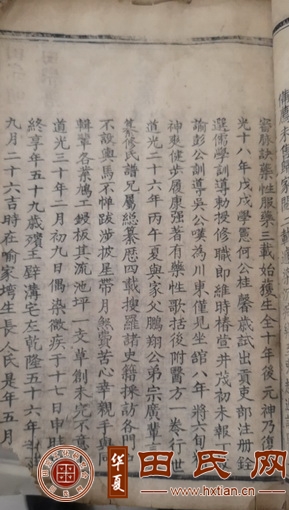 察脉訣藥性服藥三載始獲生全十年後元神乃復
光十八年戊戌學憲何公桂馨歲試出貢吏部注册銓
選儒學訓導勅授修職郎維時椿萱并茂初未報丁
諭彭公訓導吳公嘆為川東僅見坐舘八年將六旬
神爽健步履康强著有藥性歌括後附醫方一卷行世
道光二十六年丙午夏與家父鵬翔公弟宗廣輩
纂修氏譜兄屬總纂歷四載搜羅諸史籍採訪各門
不設輿馬不憚跋涉披星帶月煞費苦心幸親手與同
輯輩各業鳩工鋟板其流池坪 支草創未完不意
道光三十年二月初九日偶染微疾于十七日申
終享年五十九歲殯王璧溝宅左乾隆五十六年
九月二十六吉時在喻家塆生長 人氏是年五月
华夏
田氏网
www.hxtian.cn